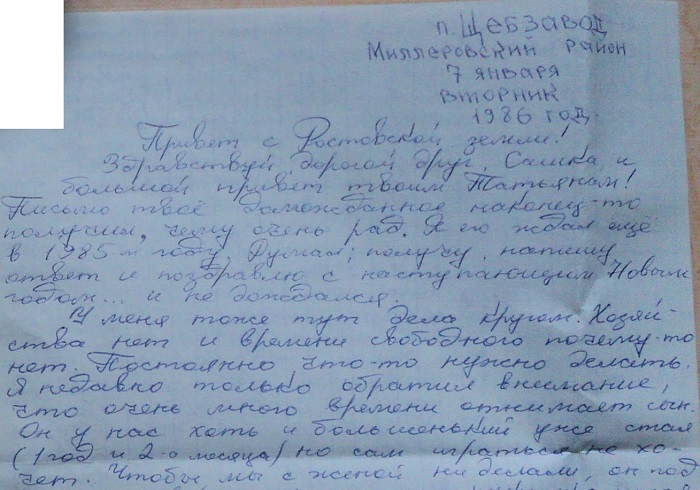 п. ЩЕБЗАВОД
МИЛЛЕРОВСКИЙ РАЙОН
7 ЯНВАРЯ
ВТОРНИК
1986 год.
Привет с Ростовской земли!
Здравствуй, дорогой друг, Сашка и
большой привет твоим Татьянам!
Письмо твоё долгожданное наконец-то
получил, чему очень рад. Я его ждал ещё
в 1985-м году. Думал; получу, напишу
ответ и поздравлю с наступающим Новым
годом... и не дождался.
У меня тоже тут дела кругом. Хозяй-
ства нет и времени свободного почему-то
нет. Постоянно что-то нужно делать.
Я недавно только обратил внимание,
что очень много времени отнимает сын.
Он у нас хоть и большенький уже стал
(1 год и 2-а месяца) но сам играться не хо-
чет. Чтобы мы с женой ни делали, он под